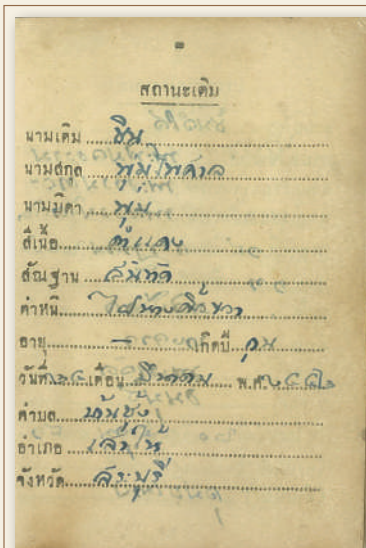 ๒
สถานะเดิม
นามเดิม ชิน
นามสกุล พุ่มไพศาล
นามบิดา พุ่ม
สีเนื้อ ดำแดง
สัณฐาน สันทัด
ตำหนิ ไฝข้างคิ้วขวา
อายุ – เกิดปี กุน
วันที่ เดือน มีนาคม พ.ศ.
ตำบล
อำเภอ
จังหวัด สระบุรี